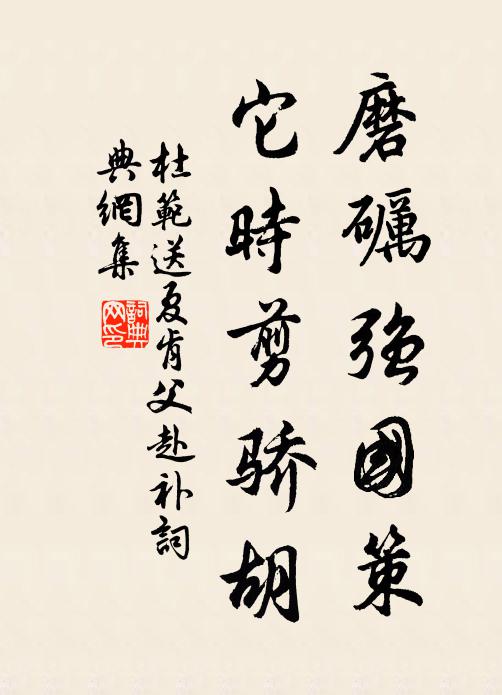 磨礪強國策
它時剪骄胡
杜範送夏肯父赴补詞
典網集
詞典网印